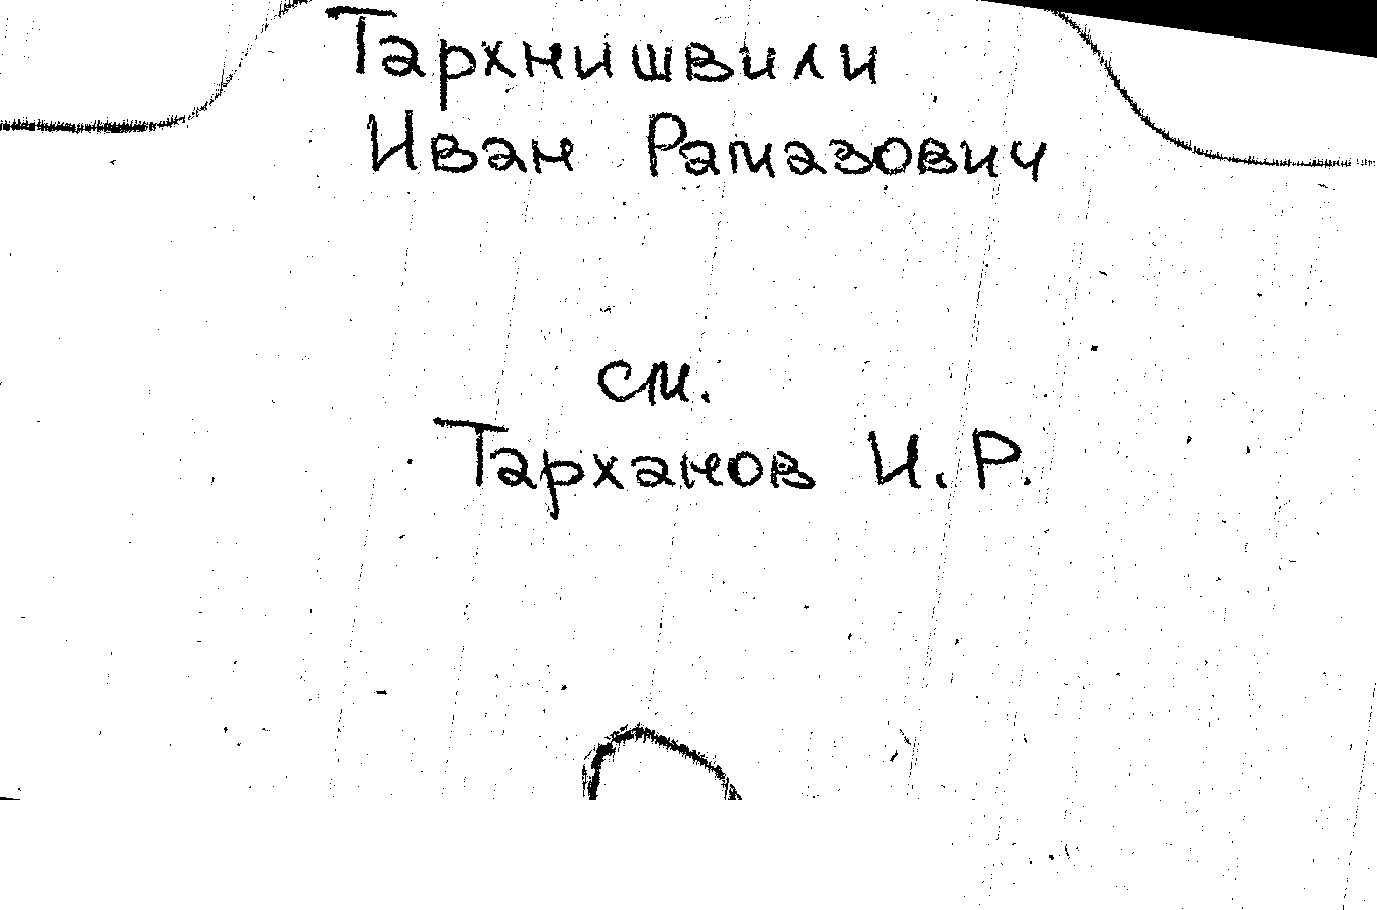 Тархнишвили
Иван Рамазович
см.
Тарханов И.Р.